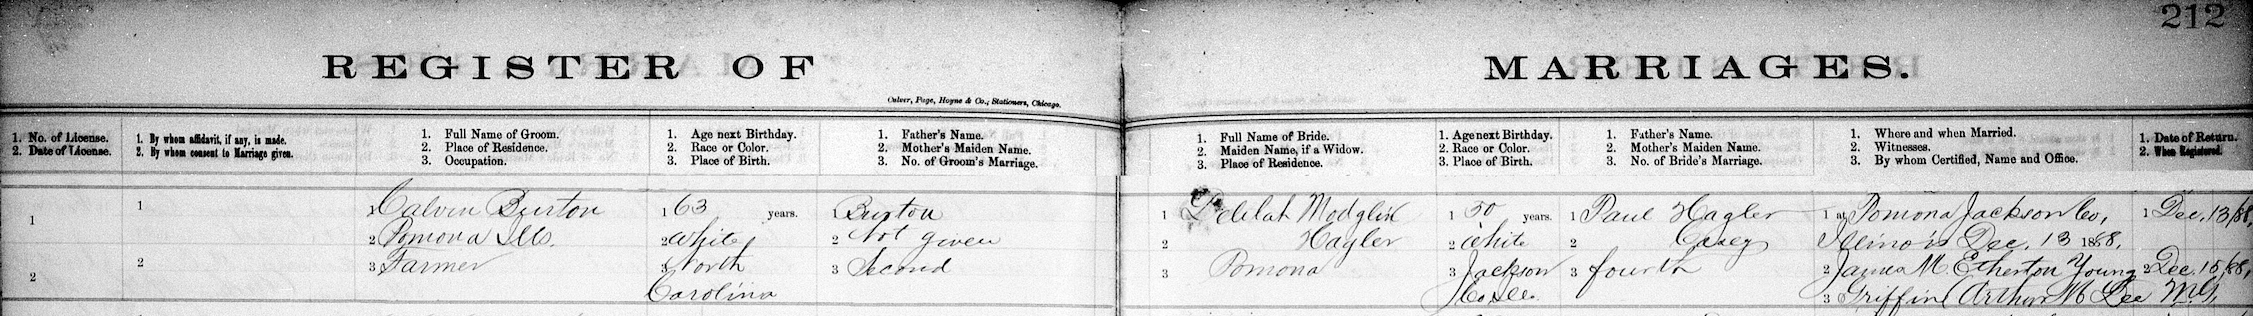 212
REGISTER OF MARRIAGES.
Culver, Page, Hoyne & Co., Stationers, Chicago.
1. No. of License.
2. Date of License.
1. By whom affidavit, if any, is made.
2. By whom consent to Marriage given.
1. Full Name of Groom.
2. Place of Residence.
3. Occupation.
1. Age next Birthday.
2. Race or Color.
3. Place of Birth.
1. Father's Name.
2. Mother's Maiden Name.
3. No. of Groom's Marriage.
1. Full Name of Bride.
2. Maiden Name, if a Widow.
3. Place of Residence.
1. Age next Birthday.
2. Race or Color.
3. Place of Birth.
1. Father's Name.
2. Mother's Maiden Name.
3. No. of Bride's Marriage.
1. Where and when Married.
2. Witnesses.
3. By whom Certified, Name and Office.
1. Date of Return.
2. When Registered.
1
2
1
2
1 Calvin Burton
2 Pomona Ills.
3 Farmer
1 63 years.
2 White
3 North
Carolina
1 Burton
2 Not given
3 Second
1 Delilah Modglin
2 Hagler
3 Pomona
1 50 years.
2 White
3 Jackson
Co Ills.
1 Paul Hagler
2 Casey
3 fourth
1 at Pomona Jackson Co,
Illinois Dec. 13 1888,
2 James M. Etherton Young
3 Griffin Arthur M Lee M.G.
1 Dec. 13/88,
2 Dec. 15/88,